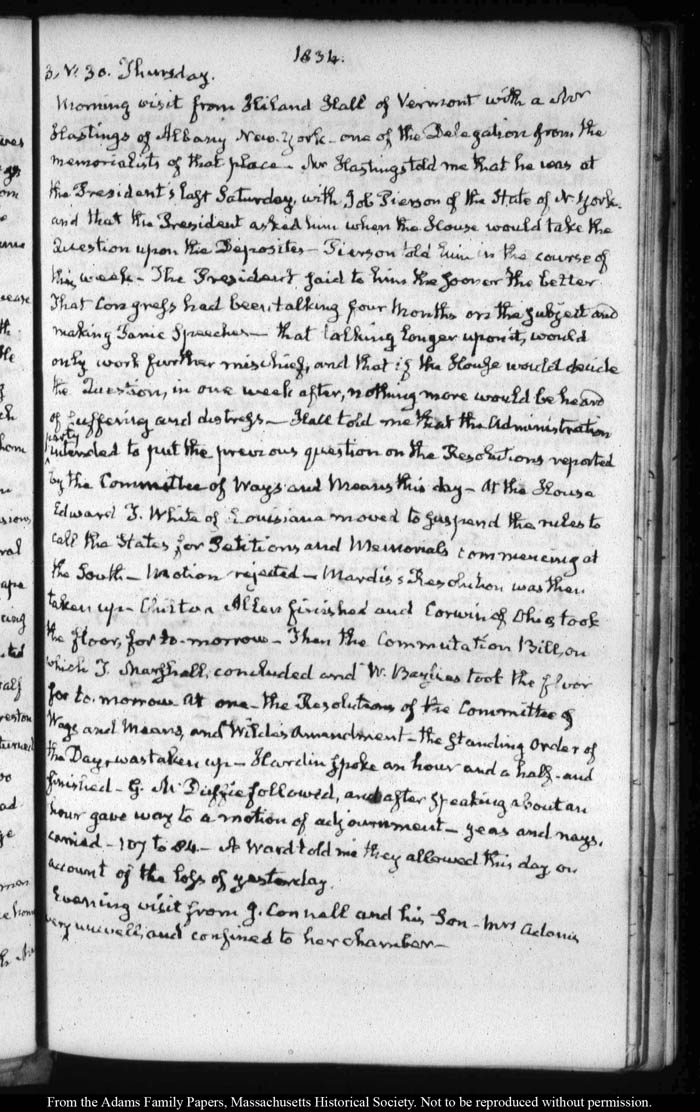 1834.
3. V: 30. Thursday.
Morning visit from Hiland Hall of Vermont with a Mr
Hastings of Albany New-York - one of the Delegation from the
memorialists of that place - Mr Hastings told me that he was at
the President's last Saturday, with Job Pierson of the State of N. York.
and that the President asked him when the House would take the
Question upon the Deposites - Pierson told him in the course of
this week - The President said to him the sooner the better
That Congress had been talking four Months on the subject and
making Panic Speeches - that talking longer upon it, would
only work further mischief, and that if the House would decide
the Question, in one week after, nothing more would be heard
of suffering and distress - Hall told me that the Administration
party
intended to put the previous question on the Resolutions reported
by the Committee of Ways and Means this day - At the House
Edward D. White of Louisiana moved to suspend the rules to
call the States for Petitions and Memorials commencing at
the South - Motion rejected - Mardis's Resolution was then
taken up - Chilton Allen finished and Corwin of Ohio, took
the floor, for to-morrow - Then the Commutation Bill, on
which T. Marshall, concluded and W. Baylies took the floor
for to-morrow At one - the Resolutions of the Committee of
Ways and Means, and Wilde's Amendment - the standing Order of
the Day, was taken up - Hardin spoke an hour and a half - and
finished - G. McDuffie followed, and after speaking about an
hour gave way to a motion of adjournment - yeas and nays,
carried - 107 to 84 - A Ward told me they allowed this day on
account of the loss of yesterday.
Evening visit from J. Connell and his Son - Mrs Adams
very unwell, and confined to her chamber -
From the Adams Family Papers, Massachusetts Historical Society. Not to be reproduced without permission.